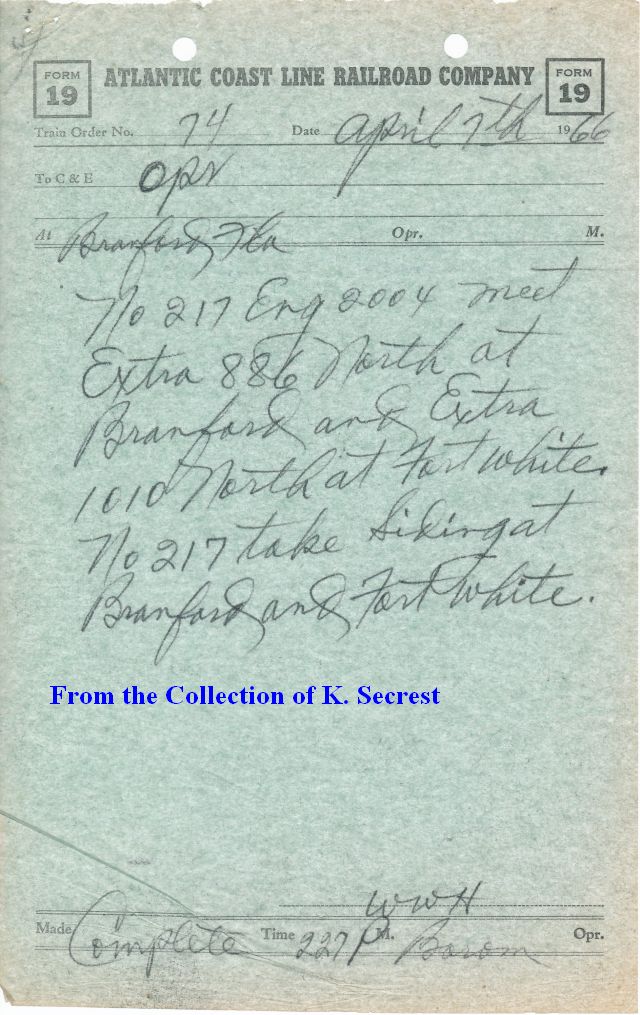 FORM 19 ATLANTIC COAST LINE RAILROAD COMPANY FORM 19
Train Order No. 74 Date April 7th 1966
To C & E Opr
At Branford, Fla Opr. M.
No 217 Eng 2004 meet
Extra 886 North at
Branford and Extra
1010 North at Fort White.
No 217 take Siding at
Branford and Fort White.
From the Collection of K. Secrest
WWH
Made Complete Time 227 P M. Barom Opr.